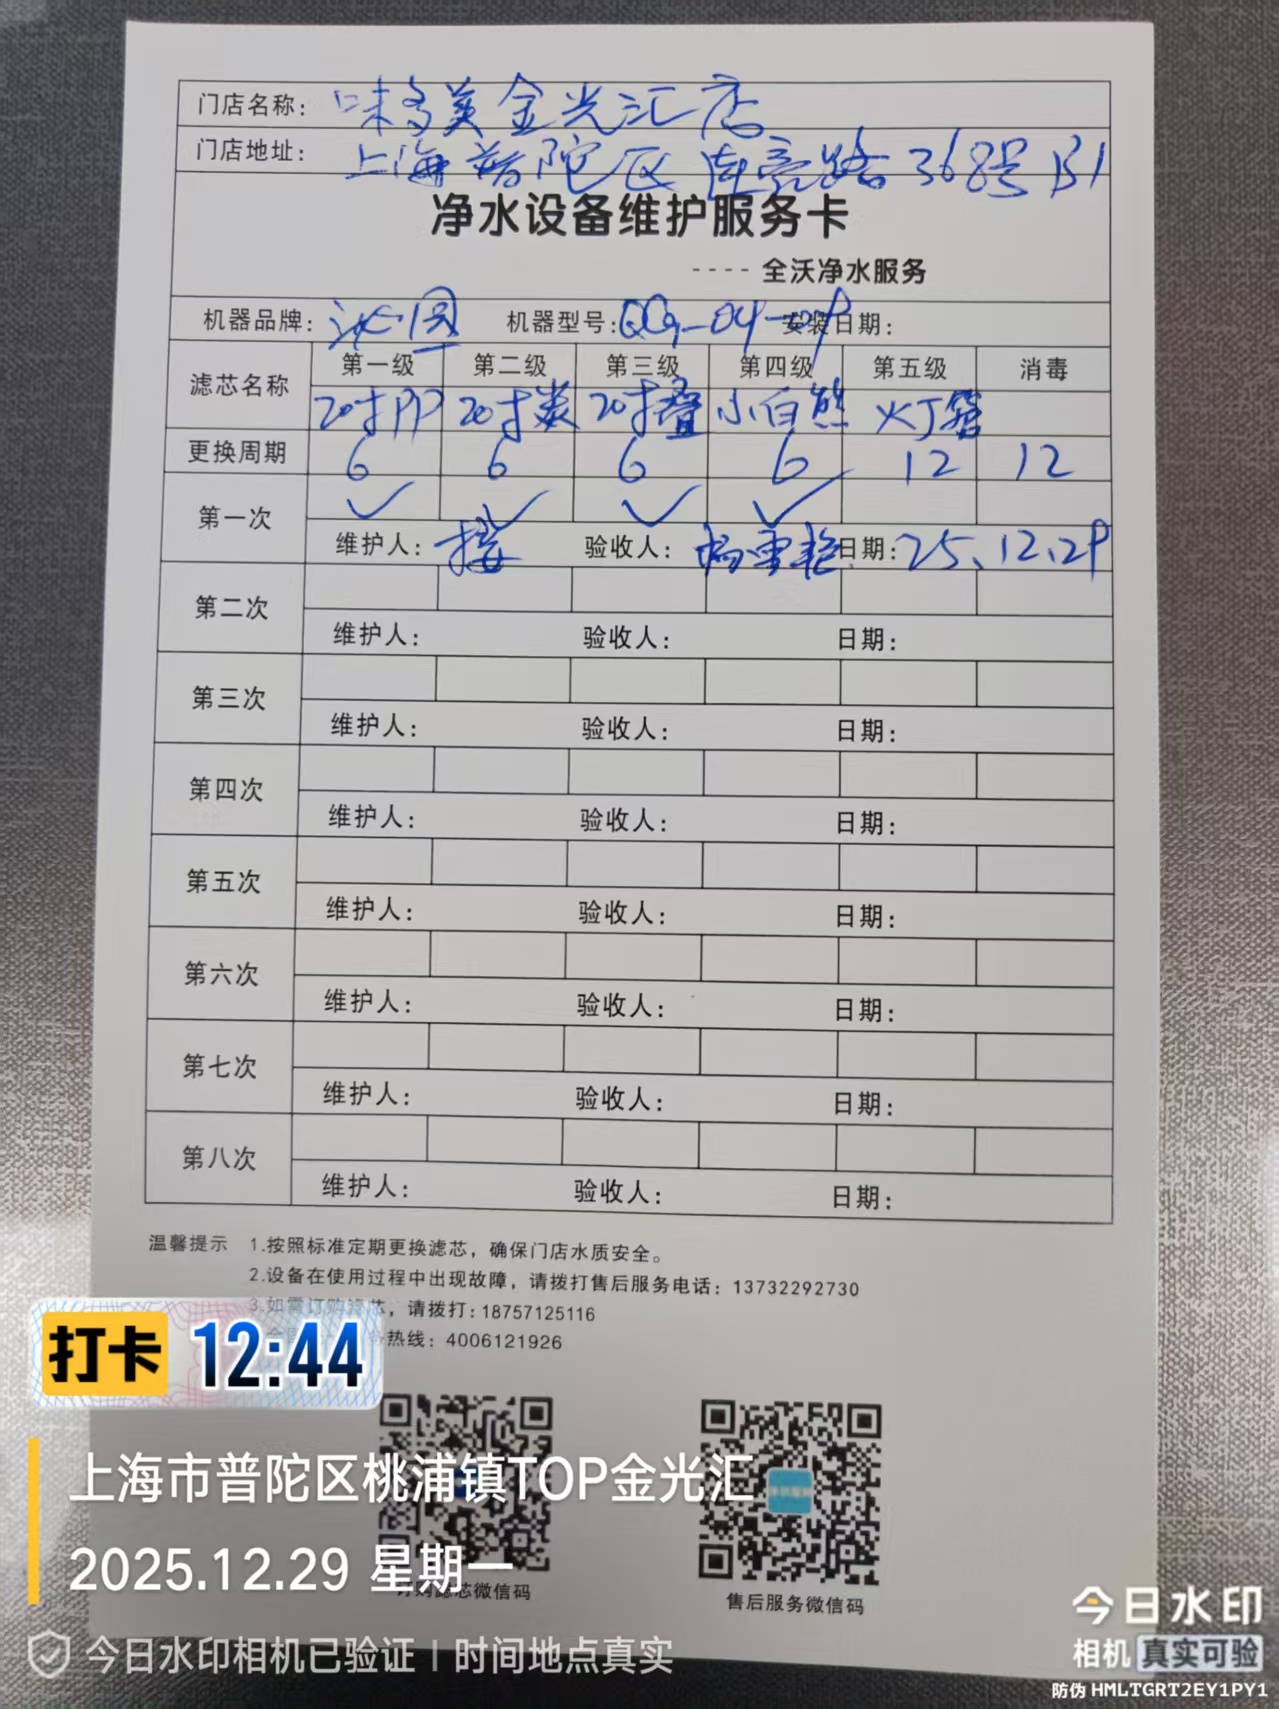 门店名称: 味多美金光汇店
门店地址: 上海普陀区 路368号B1
净水设备维护服务卡
---- 全沃净水服务
机器品牌: 沁园 机器型号: QG-04-09 安装日期:
滤芯名称 第一级 第二级 第三级 第四级 第五级 消毒
20寸PP 20寸炭 20寸叠 小白熊 灯管
更换周期 6 6 6 6 12 12
第一次 ✓ ✓ ✓ ✓
维护人: 验收人: 日期: 25.12.29
第二次
维护人: 验收人: 日期:
第三次
维护人: 验收人: 日期:
第四次
维护人: 验收人: 日期:
第五次
维护人: 验收人: 日期:
第六次
维护人: 验收人: 日期:
第七次
维护人: 验收人: 日期:
第八次
维护人: 验收人: 日期:
温馨提示 1.按照标准定期更换滤芯，确保门店水质安全。
2.设备在使用过程中出现故障，请拨打售后服务电话: 13732292730
3.如需订购滤芯，请拨打: 18757125116
热线: 4006121926
打卡 12:44
上海市普陀区桃浦镇TOP金光汇
2025.12.29 星期一
订购滤芯微信码 售后服务微信码
今日水印相机已验证 | 时间地点真实
今日水印
相机 真实可验
防伪 HMLTGRT2EY1PY1